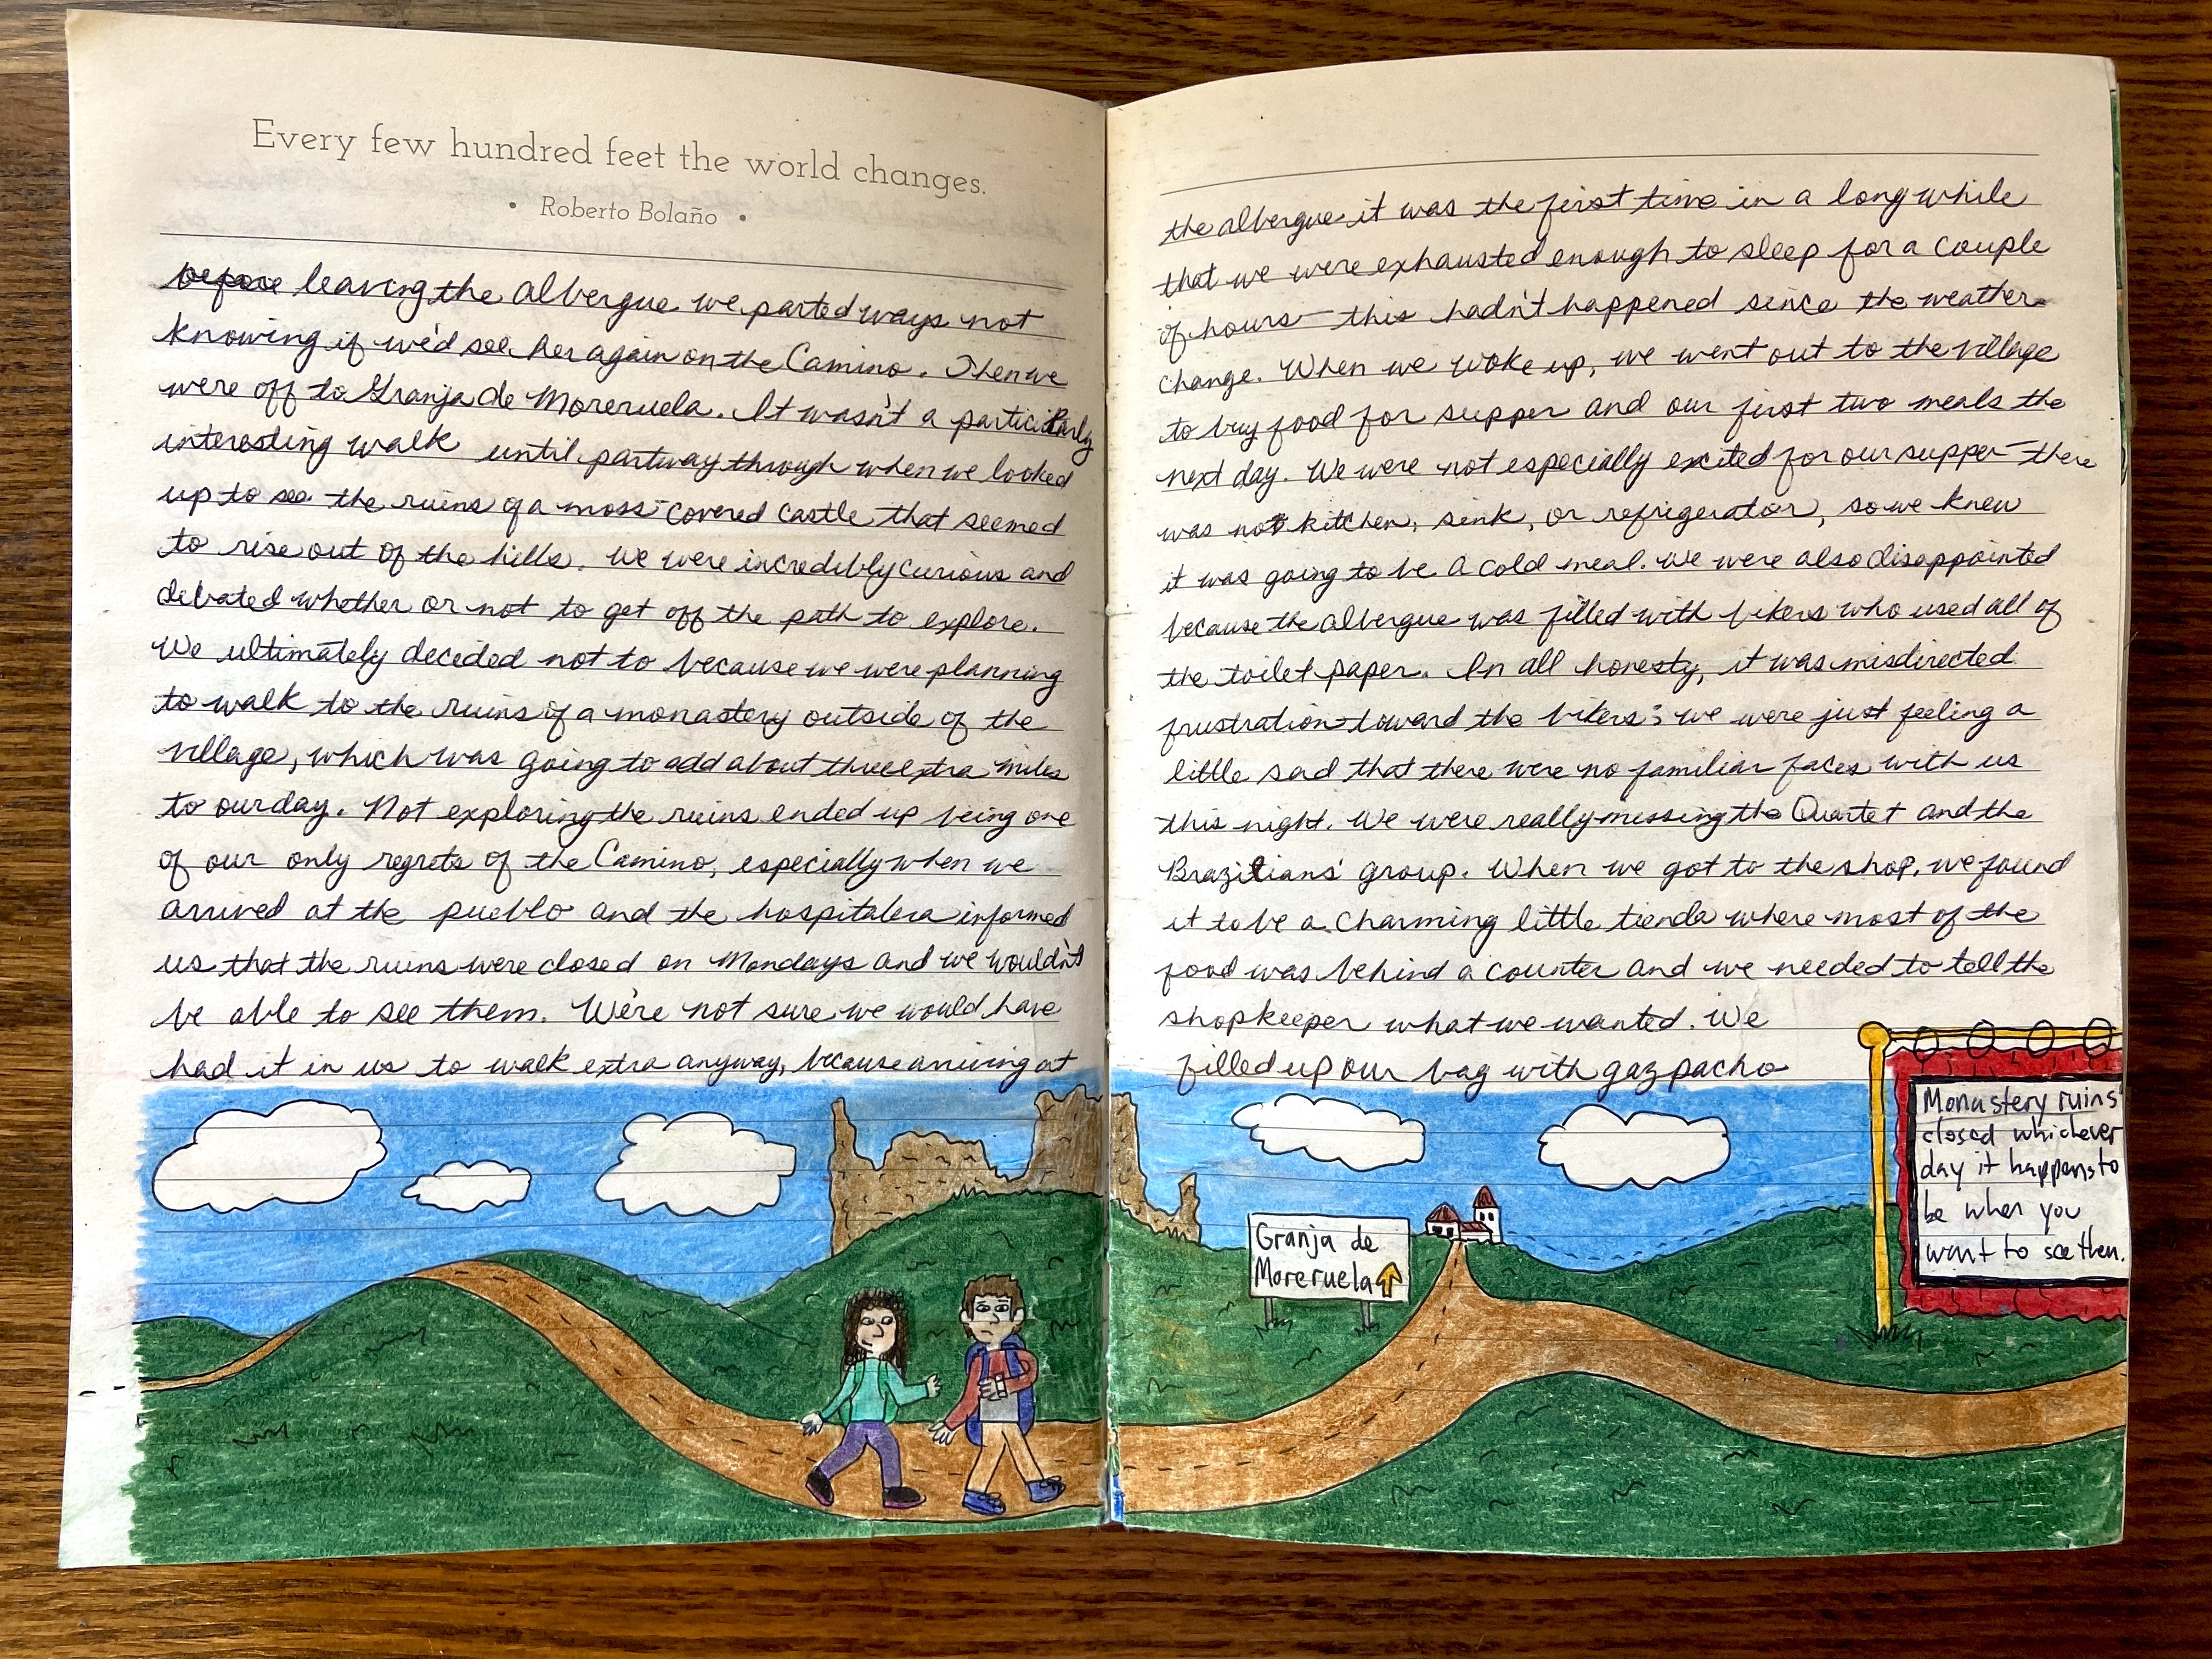 Every few hundred feet the world changes.
• Roberto Bolaño •
before leaving the albergue we parted ways not
knowing if we'd see her again on the Camino. Then we
were off to Granja de Moreruela. It wasn't a particularly
interesting walk until partway through when we looked
up to see the ruins of a moss-covered castle that seemed
to rise out of the hills. We were incredibly curious and
debated whether or not to get off the path to explore.
We ultimately decided not to because we were planning
to walk to the ruins of a monastery outside of the
village, which was going to add about three extra miles
to our day. Not exploring the ruins ended up being one
of our only regrets of the Camino, especially when we
arrived at the pueblo and the hospitalera informed
us that the ruins were closed on Mondays and we wouldn't
be able to see them. We're not sure we would have
had it in us to walk extra anyway, because arriving at
the albergue it was the first time in a long while
that we were exhausted enough to sleep for a couple
of hours—this hadn't happened since the weather
change. When we woke up, we went out to the village
to buy food for supper and our first two meals the
next day. We were not especially excited for our supper—there
was not kitchen, sink, or refrigerator, so we knew
it was going to be a cold meal. We were also disappointed
because the albergue was filled with bikers who used all of
the toilet paper. In all honesty, it was misdirected
frustration toward the bikers; we were just feeling a
little sad that there were no familiar faces with us
this night. We were really missing the Quartet and the
Brazilians' group. When we got to the shop, we found
it to be a charming little tienda where most of the
food was behind a counter and we needed to tell the
shopkeeper what we wanted. We
filled up our bag with gazpacho
Granja de
Moreruela
Monastery ruins
closed whichever
day it happens to
be when you
want to see them.